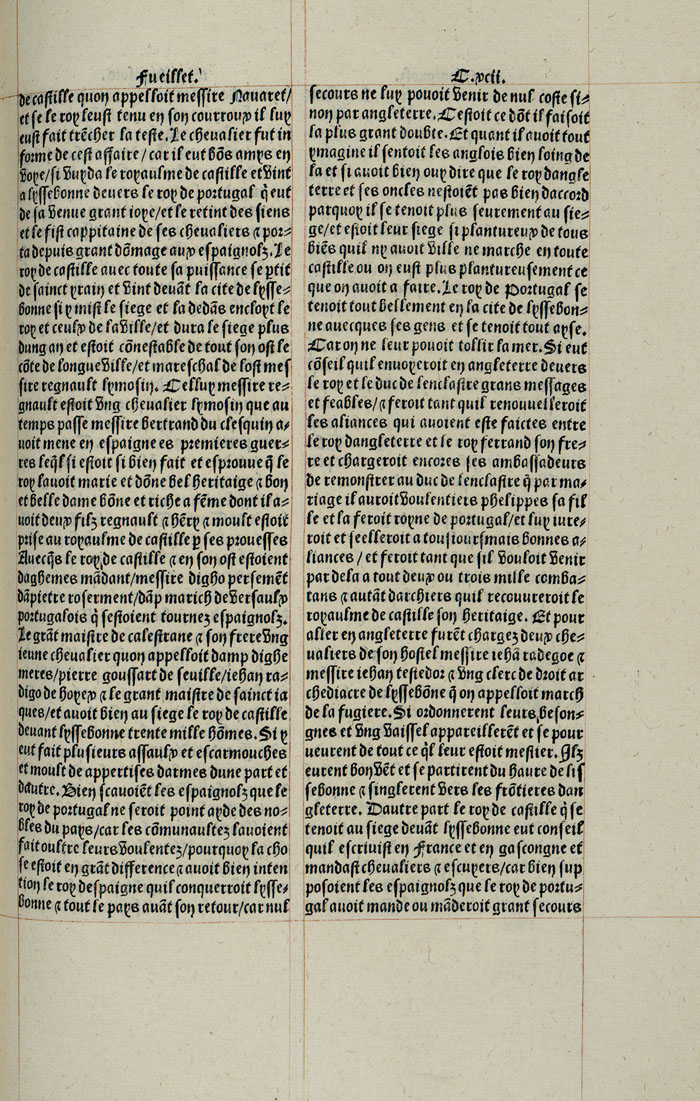 Fueillet.
C.xcii.
de castille quon appelloit messire Nauaret/
et se le roy leust tenu en son courroux il luy
eust fait trẽcher la teste. Le cheualier fut in
forme de cest affaire / car il eut bõs amys en
voye/si vuyda le royaulme de castille et vint
a lyssebonne deuers le roy de portugal q̃ eut
de sa venue grant ioye/et le retint des siens
et le fist cappitaine de ses cheualiers ⁊ por-
ta depuis grant dõmage aux espaignolz. Le
roy de castille auec toute sa puissance se p̃tit
de sainct yrain et vint deuãt la cite de lysse-
bonne si y mist le siege et la dedãs encloyt le
roy et ceulx de la ville/et dura le siege plus
dung an et estoit cõnestable de tout son ost le
cõte de longue ville/et mareschal de lost mes
sire regnault lymosin. Celluy messire re-
gnault estoit vng cheualier lymosin que au
temps passe messire bertrand du clesquin a-
uoit mene en espaigne es premieres guer-
res leq̃l si estoit si bien fait et esprouue q̃ le
roy lauoit marie et dõne bel heritaige ⁊ bon
et belle dame bõne et riche a fẽme dont il a-
uoit deux filz regnault ⁊ hẽry ⁊ moult estoit
prise au royaulme de castille p̱ ses prouesses
Auecq̃s le roy de castille ⁊ en son ost estoient
daghemes mãdant/messire digho persemẽt
dãpietre roserment/dãp marich de versaulx
portugalois q̃ sestoient tournez espaignolz.
Le grãt maistre de calestrane ⁊ son frere vng
ieune cheualier quon appelloit damp dighe
meres/pierre goussart de seuille/iehan ra-
digo de hoyex ⁊ le grant maistre de sainct ia
ques/et auoit bien au siege le roy de castille
deuant lyssebonne trente mille hõmes. Si y
eut fait plusieurs assaulx et escarmouches
et moult de appertises darmes dune part et
dautre. Bien scauoiẽt les espaignolz que le
roy de portugal ne seroit point ayde des no-
bles du pays/car les cõmunaultez lauoient
fait oultre leurs voulentez/pourquoy la cho
se estoit en grãt difference ⁊ auoit bien inten
tion le roy despaigne quil conquerroit lysse-
bonne ⁊ tout le pays auãt son retour/car nul
secours ne luy pouoit venir de nul coste si-
non par angleterre. Cestoit ce dõt il faisoit
la plus grant doubte. Et quant il auoit tout
ymagine il sentoit les anglois bien loing de
la et si auoit bien ouy dire que le roy dangle
terre et ses oncles nestoiẽt pas bien daccord
parquoy il se tenoit plus seurement au sie-
ge/et estoit leur siege si plantureux de tous
biẽs quil ny auoit ville ne marche en toute
castille ou on eust plus plantureusement ce
que on auoit a faire. Le roy de Portugal se
tenoit tout bellement en la cite de lyssebon-
ne auecques ses gens et se tenoit tout ayse.
Car on ne leur pouoit tollir la mer. Si eut
cõseil quil enuoyeroit en angleterre deuers
le roy et le duc de lenclastre grans messages
et feables/⁊ feroit tant quil renouuelleroit
les aliances qui auoient este faictes entre
le roy dangleterre et le roy ferrand son fre-
re et chargeroit encores ses ambassadeurs
de remonstrer au duc de lenclastre q̃ par ma-
riage il auroit voulentiers phelippes sa fil
le et la feroit royne de portugal/et luy iure-
roit et seelleroit a tousioursmais bonnes a-
liances / et feroit tant que sil vouloit venir
par dela a tout deux ou trois mille comba-
tans ⁊ autãt darchiers quil recouureroit le
royaulme de castille son heritaige. Et pour
aller en angleterre furẽt chargez deux che-
ualiers de son hostel messire iehã radegoe ⁊
messire iehan testedor ⁊ vng clerc de droit ar
chediacre de lyssebõne q̃ on appelloit march
de la fugiere. Si ordonnerent leurs beson-
gnes et vng vaissel appareillerẽt et se pour
ueurent de tout ce q̃l leur estoit mestier. Ilz
eurent bon vẽt et se partirent du haure de lis
sebonne ⁊ singlerent vers les frõtieres dan
gleterre. Dautre part le roy de castille q̃ se
tenoit au siege deuãt lyssebonne eut conseil
quil escriuist en France et en gascongne et
mandast cheualiers ⁊ escuyers/car bien sup
posoient les espaignolz que le roy de portu-
gal auoit mande ou mãderoit grant secours